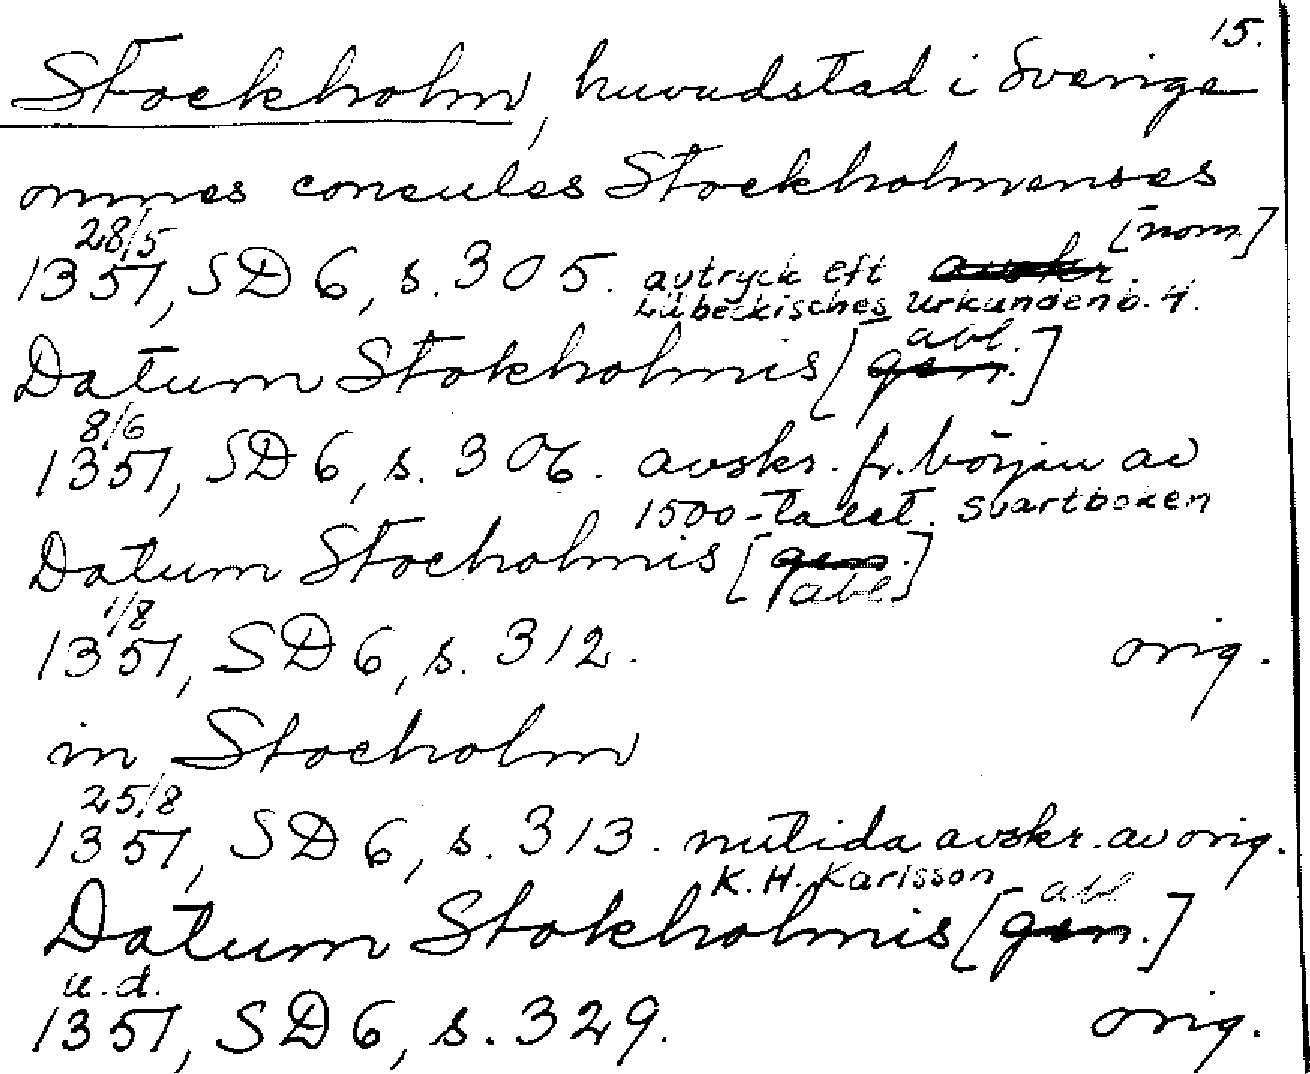 15.
Stockholm, huvudstad i Sverige
omnes consules Stockholmenses
[nom.]
28/5
1357, SD 6, s. 305. avtryck eft avskr.
Lübeckisches Urkundenb. 4.
Datum Stokholmis [gen. abl.]
8/6
1357, SD 6, s. 306. avskr. fr. början av
1500-talet. Svartboken
Datum Stocholmis [gen. abl.]
1/8
1357, SD 6, s. 312. orig.
in Stocholm
25/8
1357, SD 6, s. 313. nutida avskr. av orig.
K. H. Karlsson
Datum Stokholmis [gen. abl.]
u. d.
1357, SD 6, s. 329. orig.